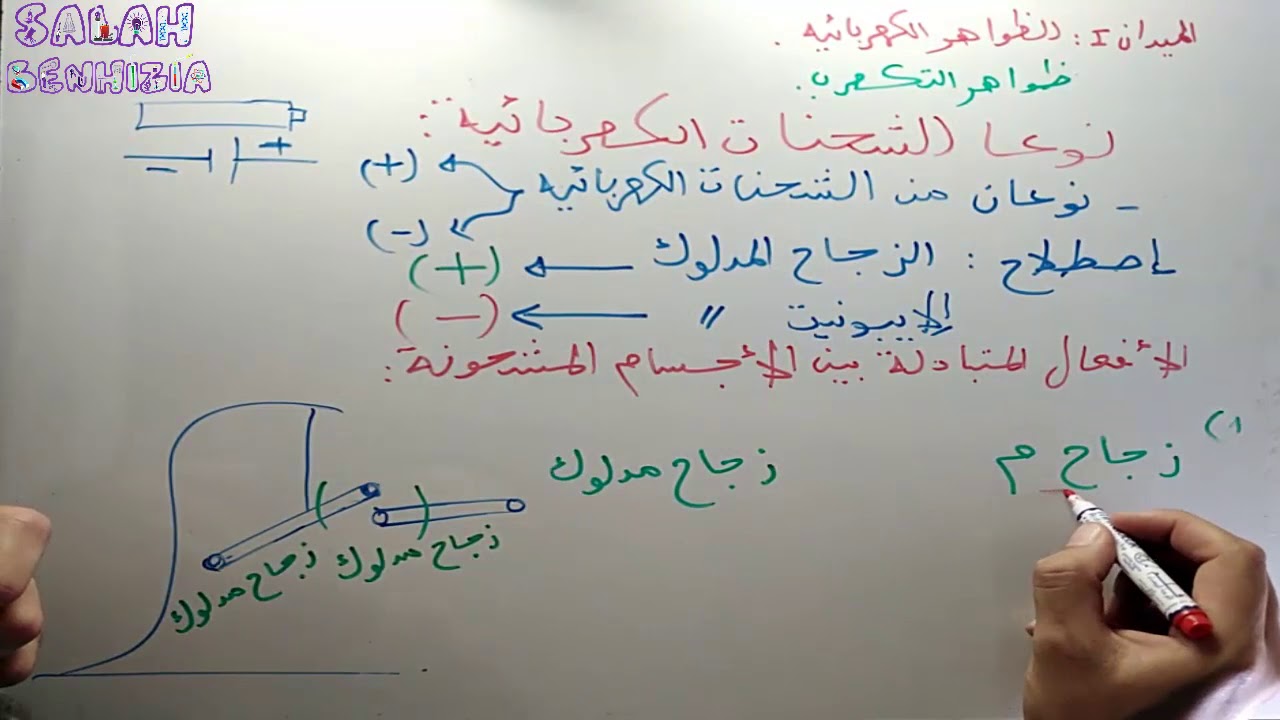 SALAH
BENHIZIA
الميدان I: الظواهر الكهربائية.
ظواهر التكهرب.
نوعا الشحنات الكهربائية:
- نوعان من الشحنات الكهربائية
(+)
(-)
+
-
إصطلاح: الزجاج المدلوك ← (+)
الإيبونيت " ← (-)
الأفعال المتبادلة بين الأجسام المشحونة:
1) زجاج م زجاج مدلوك
زجاج مدلوك
زجاج مدلوك